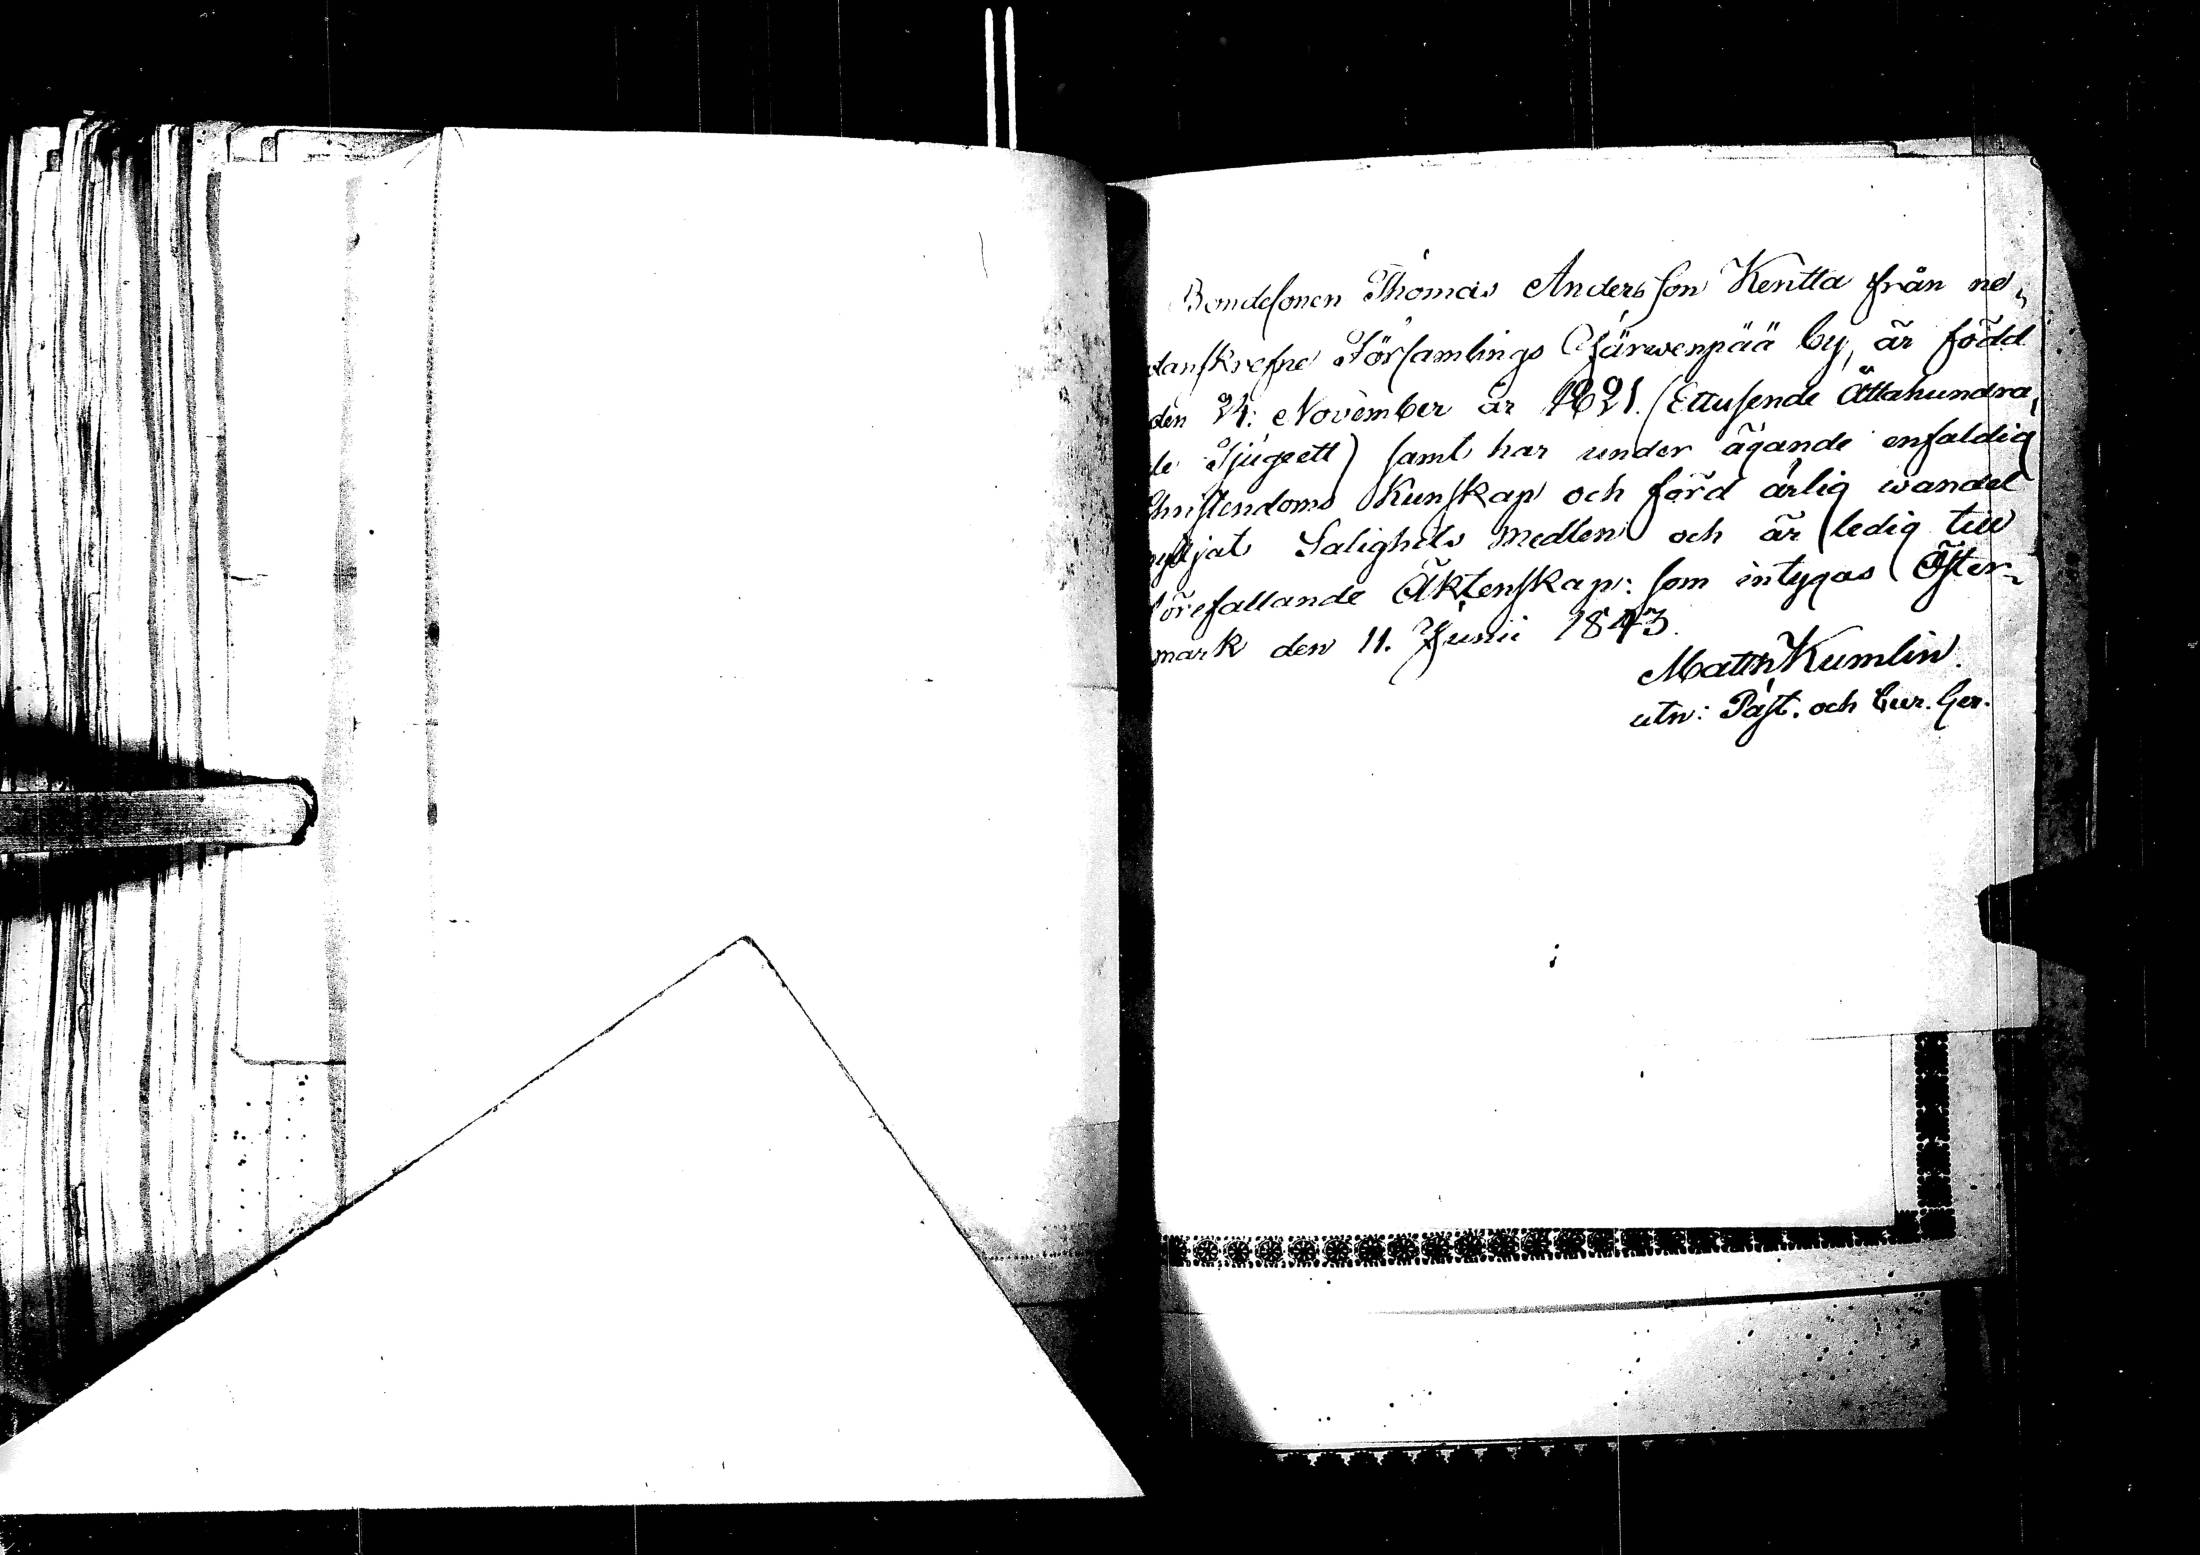 Bondesonen Thomas Andersson Kentta från ne„
danskrefne Församlings Järwenpää by, är född
den 21: November år 1821. (Ettusende Åttahundra„
de Tjugeett) samt har under ägande enfaldig
Christendoms Kunskap och förd ärlig wandel
nyttjat Salighets medlen och är ledig till
förefallande Äktenskap: som intygas Öster-
mark den 11. Junii 1843.
Matth Kumlin.
utn: Past. och Cur. Ger.